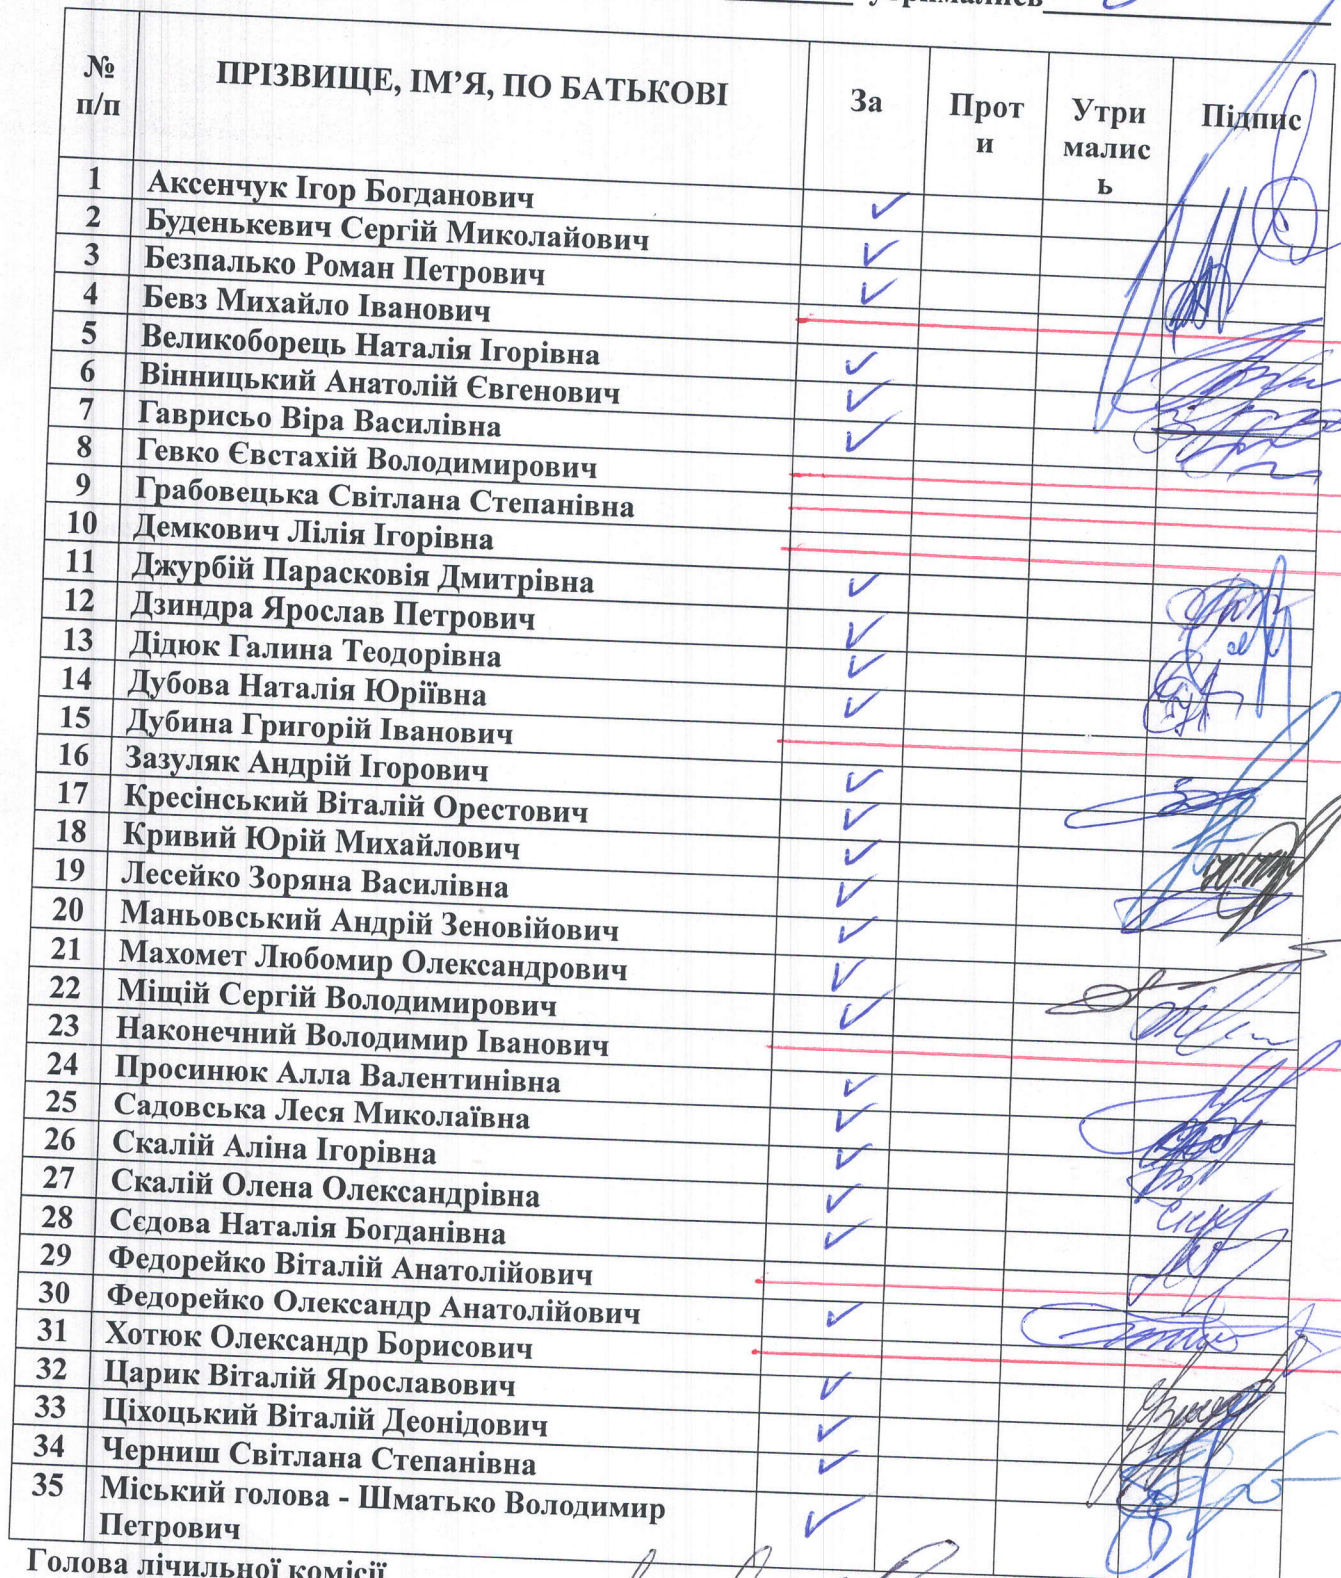 утримались
№ п/п ПРІЗВИЩЕ, ІМ’Я, ПО БАТЬКОВІ За Проти Утрималися Підпис
1 Аксенчук Ігор Богданович ✓
2 Буденькевич Сергій Миколайович ✓
3 Безпалько Роман Петрович ✓
4 Бевз Михайло Іванович
5 Великоборець Наталія Ігорівна ✓
6 Вінницький Анатолій Євгенович ✓
7 Гаврисьо Віра Василівна ✓
8 Гевко Євстахій Володимирович
9 Грабовецька Світлана Степанівна
10 Демкович Лілія Ігорівна
11 Джурбій Парасковія Дмитрівна ✓
12 Дзиндра Ярослав Петрович ✓
13 Дідюк Галина Теодорівна ✓
14 Дубова Наталія Юріївна ✓
15 Дубина Григорій Іванович
16 Зазуляк Андрій Ігорович ✓
17 Кресінський Віталій Орестович ✓
18 Кривий Юрій Михайлович ✓
19 Лесейко Зоряна Василівна ✓
20 Маньовський Андрій Зеновійович ✓
21 Махомет Любомир Олександрович ✓
22 Міщій Сергій Володимирович ✓
23 Наконечний Володимир Іванович
24 Просинюк Алла Валентинівна ✓
25 Садовська Леся Миколаївна ✓
26 Скалій Аліна Ігорівна ✓
27 Скалій Олена Олександрівна ✓
28 Сєдова Наталія Богданівна ✓
29 Федорейко Віталій Анатолійович
30 Федорейко Олександр Анатолійович ✓
31 Хотюк Олександр Борисович
32 Царик Віталій Ярославович ✓
33 Ціхоцький Віталій Деонідович ✓
34 Черниш Світлана Степанівна ✓
35 Міський голова - Шматько Володимир ✓
Петрович
Голова лічильної комісії